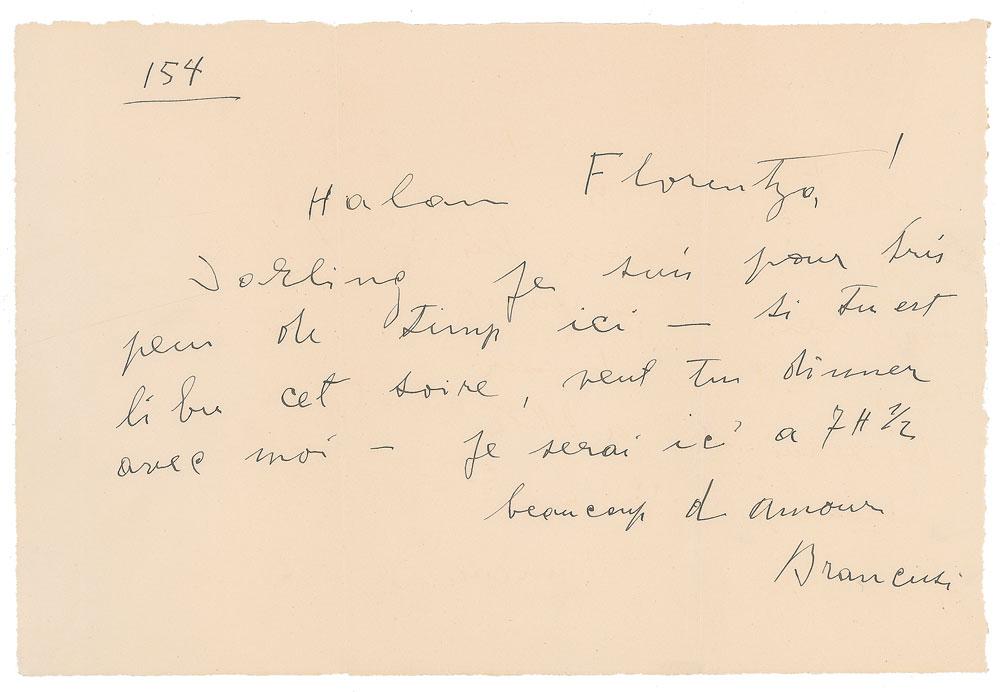 154
Halan Florentza!
Darling je suis pour tris
peu de Timp ici – si Tu est
libre cet soire, veut Tu dinner
avec moi – Je serai ici a 7 H ½
beaucoup d amour
Brancusi